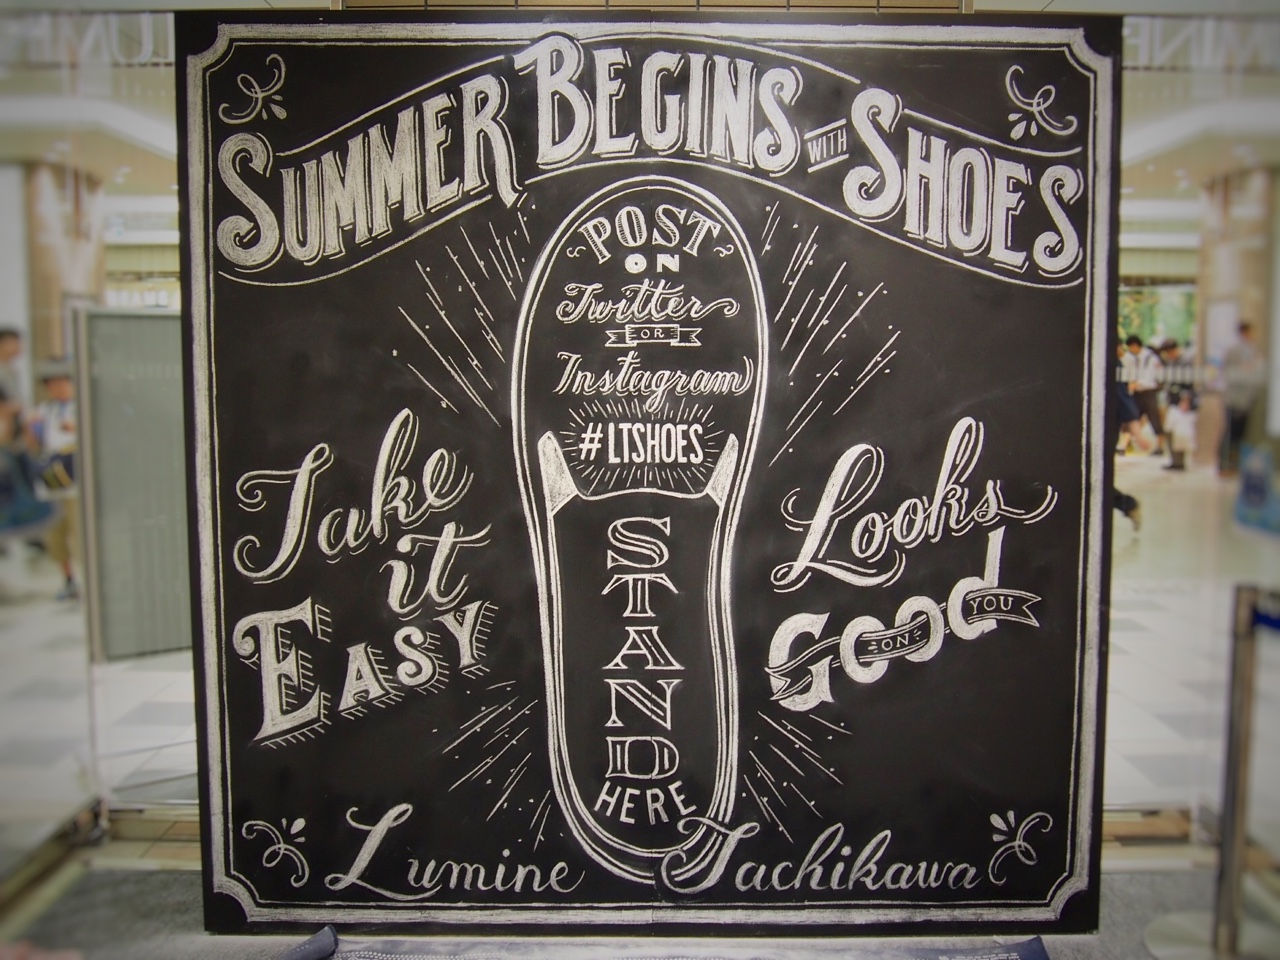 SUMMER BEGINS WITH SHOES
POST
ON
Twitter
OR
Instagram
#LTSHOES
STAND
HERE
Take
it
EASY
Looks
Good
ON YOU
Lumine Tachikawa